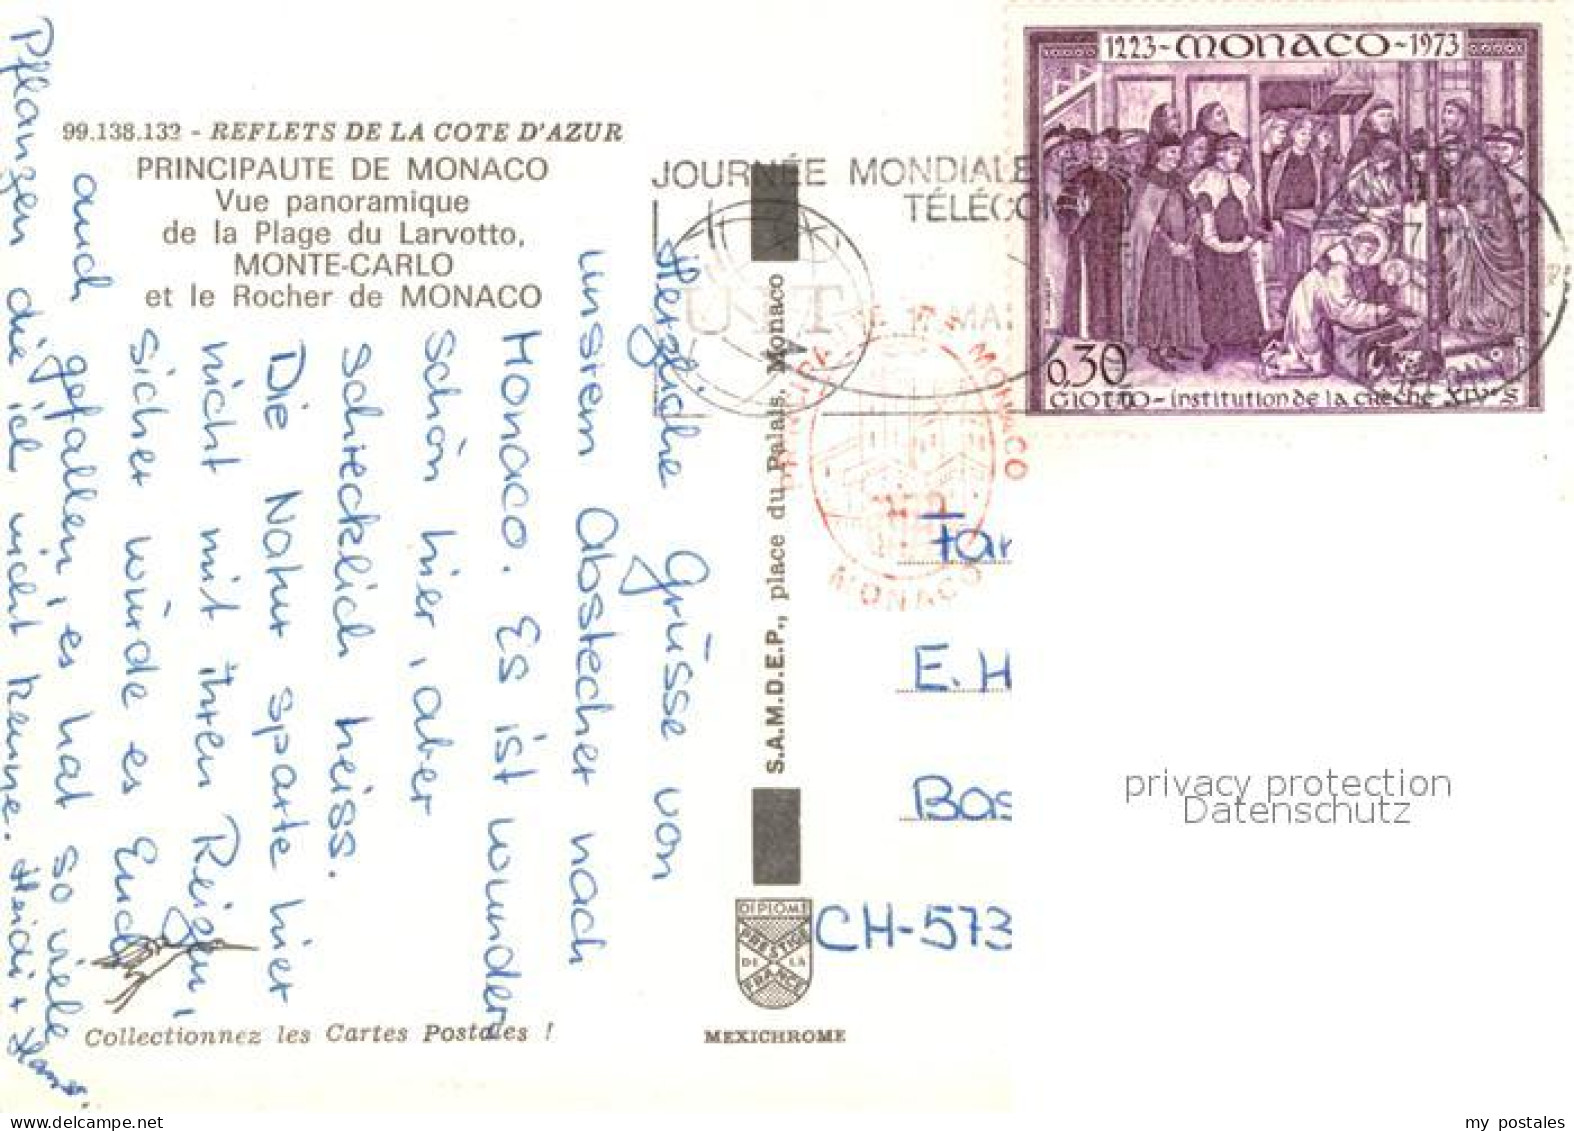 99.138.132 - REFLETS DE LA COTE D'AZUR
PRINCIPAUTE DE MONACO
Vue panoramique
de la Plage du Larvotto,
MONTE-CARLO
et le Rocher de MONACO
Herzliche Grüsse von
unsrem Abstecher nach
Monaco. Es ist wunder
schön hier, aber
schrecklich heiss.
Die Natur sparte hier
nicht mit ihren Reizen,
sicher würde es Euch
auch gefallen, es hat so viele
Pflanzen die ich nicht kenne. Heidi + Hans.
Collectionnez les Cartes Postales !
S.A.M.D.E.P., place du Palais, Monaco
DIPLOME
PRESTIGE
DE LA
FRANCE
MEXICHROME
JOURNÉE MONDIALE
TÉLÉCO
U I T
17 MAI
MONACO
MONACO
1223-MONACO-1973
0,30
GIOTTO-institution de la crèche XIVe S
Fam
E. H
Bas
CH-573
privacy protection
Datenschutz
my postales